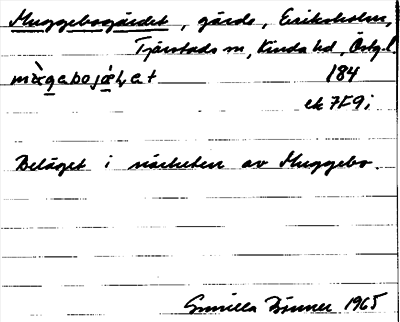 Muggebogärdet, gärde, Eriksholm,
Tjärstads sn, Kinda hd, Östg.l.
184
ek 7F9i
Beläget i närheten av Muggebo.
Gunilla Bjinner 1965